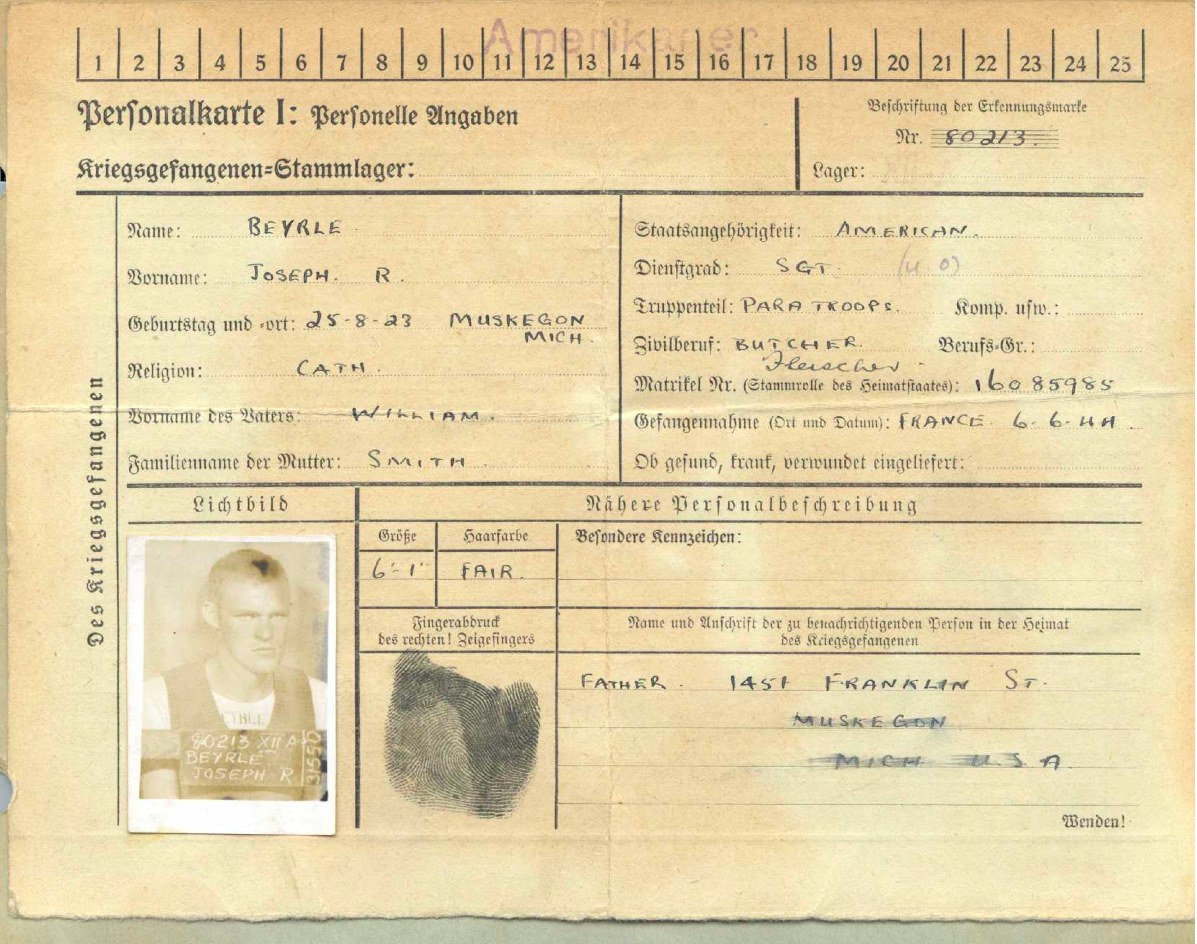 Amerikaner
1 2 3 4 5 6 7 8 9 10 11 12 13 14 15 16 17 18 19 20 21 22 23 24 25
Personalkarte I: Personelle Angaben
Kriegsgefangenen=Stammlager:
Beschriftung der Erkennungsmarke
Nr. 80213.
Lager:
Des Kriegsgefangenen
Name: BEYRLE
Vorname: JOSEPH. R.
Geburtstag und -ort: 25-8-23 MUSKEGON
MICH.
Religion: CATH.
Vorname des Vaters: WILLIAM.
Familienname der Mutter: SMITH
Staatsangehörigkeit: AMERICAN.
Dienstgrad: SGT. (U.O)
Truppenteil: PARATROOPS. Komp. usw.:
Zivilberuf: BUTCHER. Berufs-Gr.:
Fleischer
Matrikel Nr. (Stammrolle des Heimatstaates): 16085985
Gefangennahme (Ort und Datum): FRANCE 6-6-44
Ob gesund, krank, verwundet eingeliefert:
Lichtbild
Nähere Personalbeschreibung
Größe
Haarfarbe
Besondere Kennzeichen:
6'-1"
FAIR.
Fingerabdruck
des rechten! Zeigefingers
Name und Anschrift der zu benachrichtigenden Person in der Heimat
des Kriegsgefangenen
FATHER. 1451 FRANKLIN ST.
MUSKEGON
MICH USA
80213 XII A
BEYRLE
JOSEPH R
31550
Wenden!